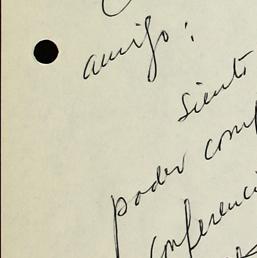 amigo:
siento
poder comp
conferenci